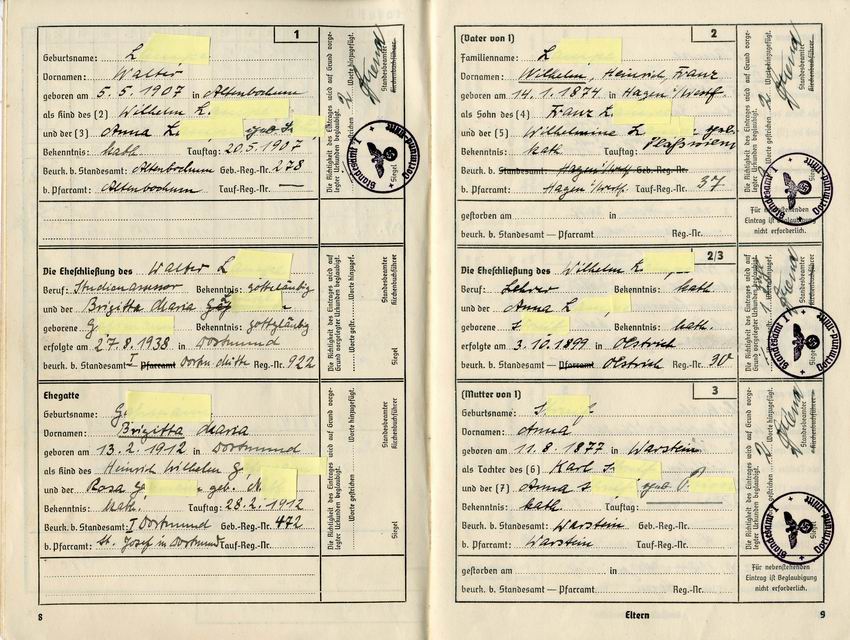 1
Geburtsname: L
Vornamen: Walter
geboren am 5. 5. 1907 in Altenbochum
als Kind des (2) Wilhelm L.
und der (3) Anna L. geb. S.
Bekenntnis: kath. Tauftag: 20.5.1907
Beurk. b. Standesamt: Altenbochum Geb.-Reg.-Nr. 278
b. Pfarramt: Altenbochum Tauf-Reg.-Nr. —
Die Richtigkeit des Eintrages wird auf Grund vorgelegter Urkunden beglaubigt.
2 Worte gestrichen Worte hinzugefügt.
Standesbeamter
Kirchenbuchführer
Siegel
Standesamt I Dortmund-Mitte
Die Eheschließung des Walter L
Beruf: Studienassessor Bekenntnis: gottgläubig
und der Brigitta Maria
geborene G Bekenntnis: gottgläubig
erfolgte am 27.8.1938 in Dortmund
beurk. b. Standesamt I Pfarramt Dortm. Mitte Reg.-Nr. 922
Standesbeamter
Kirchenbuchführer
Siegel
Ehegatte
Geburtsname: G
Vornamen: Brigitta Maria
geboren am 13. 2. 1912 in Dortmund
als Kind des Heinrich Wilhelm G.
und der Rosa G geb.
Bekenntnis: kath. Tauftag: 28.2.1912
Beurk. b. Standesamt: I Dortmund Geb.-Reg.-Nr. 472
b. Pfarramt: St. Josef in Dortmund Tauf-Reg.-Nr.
Die Richtigkeit des Eintrages wird auf Grund vorgelegter Urkunden beglaubigt.
Worte gestrichen Worte hinzugefügt.
Standesbeamter
Kirchenbuchführer
Siegel
8
(Vater von 1) 2
Familienname: L
Vornamen: Wilhelm, Heinrich, Franz
geboren am 14. 1. 1874 in Hagen i/Westf.
als Sohn des (4) Franz L.
und der (5) Wilhelmine L geb.
Bekenntnis: kath
Beurk. b. Standesamt: Hagen i/Westf. Geb.-Reg.-Nr.
b. Pfarramt: Hagen i/Westf. Tauf-Reg.-Nr. 37
gestorben am in
beurk. b. Standesamt — Pfarramt Reg.-Nr.
Die Richtigkeit des Eintrages wird auf Grund vorgelegter Urkunden beglaubigt.
2 Worte gestrichen Worte hinzugefügt.
Standesbeamter
Kirchenbuchführer
Siegel
Standesamt I Dortmund-Mitte
Für nebenstehenden
Eintrag ist Beglaubigung
nicht erforderlich.
2/3
Die Eheschließung des Wilhelm L
Beruf: Lehrer Bekenntnis: kath
und der Anna L
geborene S Bekenntnis: kath.
erfolgte am 3. 10. 1899 in
beurk. b. Standesamt — Pfarramt Reg.-Nr. 30
Standesbeamter
Kirchenbuchführer
Siegel
Standesamt I Dortmund-Mitte
(Mutter von 1) 3
Geburtsname: S
Vornamen: Anna
geboren am 11. 8. 1877 in Warstein
als Tochter des (6) Karl S.
und der (7) Anna S. geb. P.
Bekenntnis: kath. Tauftag:
Beurk. b. Standesamt: Warstein Geb.-Reg.-Nr.
b. Pfarramt: Warstein Tauf-Reg.-Nr.
gestorben am in
beurk. b. Standesamt — Pfarramt Reg.-Nr.
Die Richtigkeit des Eintrages wird auf Grund vorgelegter Urkunden beglaubigt.
Worte gestrichen Worte hinzugefügt.
Standesbeamter
Kirchenbuchführer
Siegel
Standesamt I Dortmund-Mitte
Für nebenstehenden
Eintrag ist Beglaubigung
nicht erforderlich.
Eltern
9